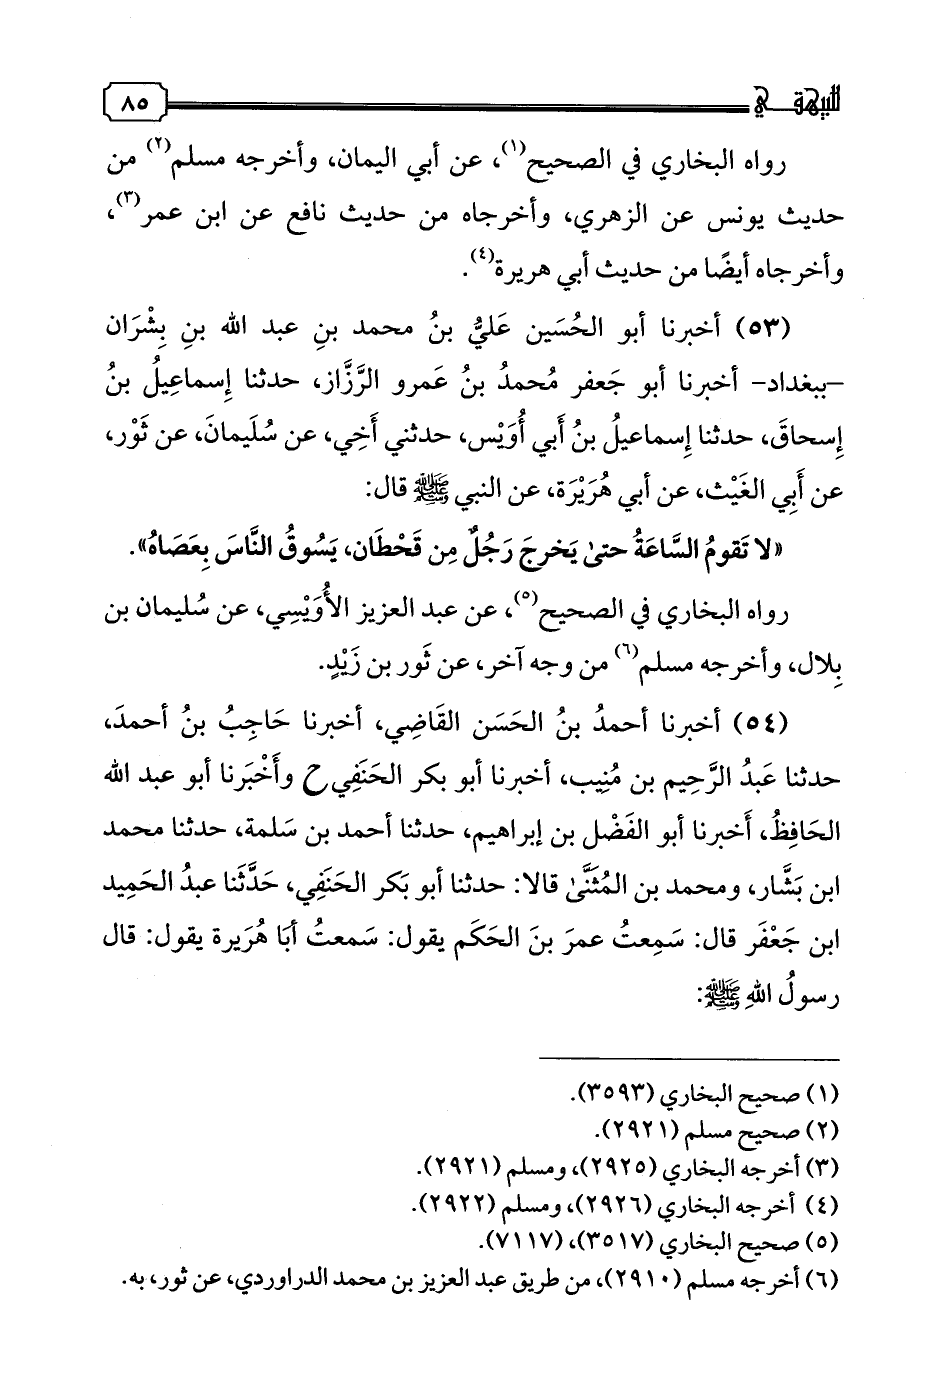 للبيهقي
٨٥
رواه البخاري في الصحيح(١)، عن أبي اليمان، وأخرجه مسلم(٢) من
حديث يونس عن الزهري، وأخرجاه من حديث نافع عن ابن عمر(٣)،
وأخرجاه أيضًا من حديث أبي هريرة(٤).
(٥٣) أخبرنا أبو الحُسَين عَليُّ بنُ محمد بنِ عبد الله بنِ بِشْرَان
-ببغداد- أخبرنا أبو جَعفر مُحمدُ بنُ عَمرو الرَّزَّاز، حدثنا إِسماعِيلُ بنُ
إِسحاقَ، حدثنا إِسماعيلُ بنُ أَبي أُوَيْس، حدثني أَخِي، عن سُلَيمانَ، عن ثَوْر،
عن أَبِي الغَيْث، عن أبي هُرَيْرَة، عن النبي ﷺ قال:
«لا تَقومُ السَّاعَةُ حتىٰ يَخرجَ رَجُلٌ مِن قَحْطَان، يَسُوقُ النَّاسَ بِعَصَاهُ».
رواه البخاري في الصحيح(٥)، عن عبد العزيز الأُوَيْسِي، عن سُليمان بن
بِلال، وأخرجه مسلم(٦) من وجه آخر، عن ثَور بن زَيْدٍ.
(٥٤) أخبرنا أحمدُ بنُ الحَسَن القَاضِي، أخبرنا حَاجِبُ بنُ أحمدَ،
حدثنا عَبدُ الرَّحِيم بن مُنِيب، أخبرنا أبو بكر الحَنَفِي ح وأَخْبَرنا أبو عبد الله
الحَافِظُ، أَخبرنا أبو الفَضْل بن إبراهيم، حدثنا أحمد بن سَلمة، حدثنا محمد
ابن بَشَّار، ومحمد بن المُثَنَّىٰ قالا: حدثنا أبو بَكر الحَنَفِي، حَدَّثَنا عبدُ الحَمِيد
ابن جَعْفَر قال: سَمِعتُ عمرَ بنَ الحَكَم يقول: سَمعتُ أبَا هُرَيرة يقول: قال
رسولُ اللهِ ﷺ:
(١) صحيح البخاري (٣٥٩٣).
(٢) صحيح مسلم (٢٩٢١).
(٣) أخرجه البخاري (٢٩٢٥)، ومسلم (٢٩٢١).
(٤) أخرجه البخاري (٢٩٢٦)، ومسلم (٢٩٢٢).
(٥) صحيح البخاري (٣٥١٧)، (٧١١٧).
(٦) أخرجه مسلم (٢٩١٠)، من طريق عبد العزيز بن محمد الدراوردي، عن ثور، به.